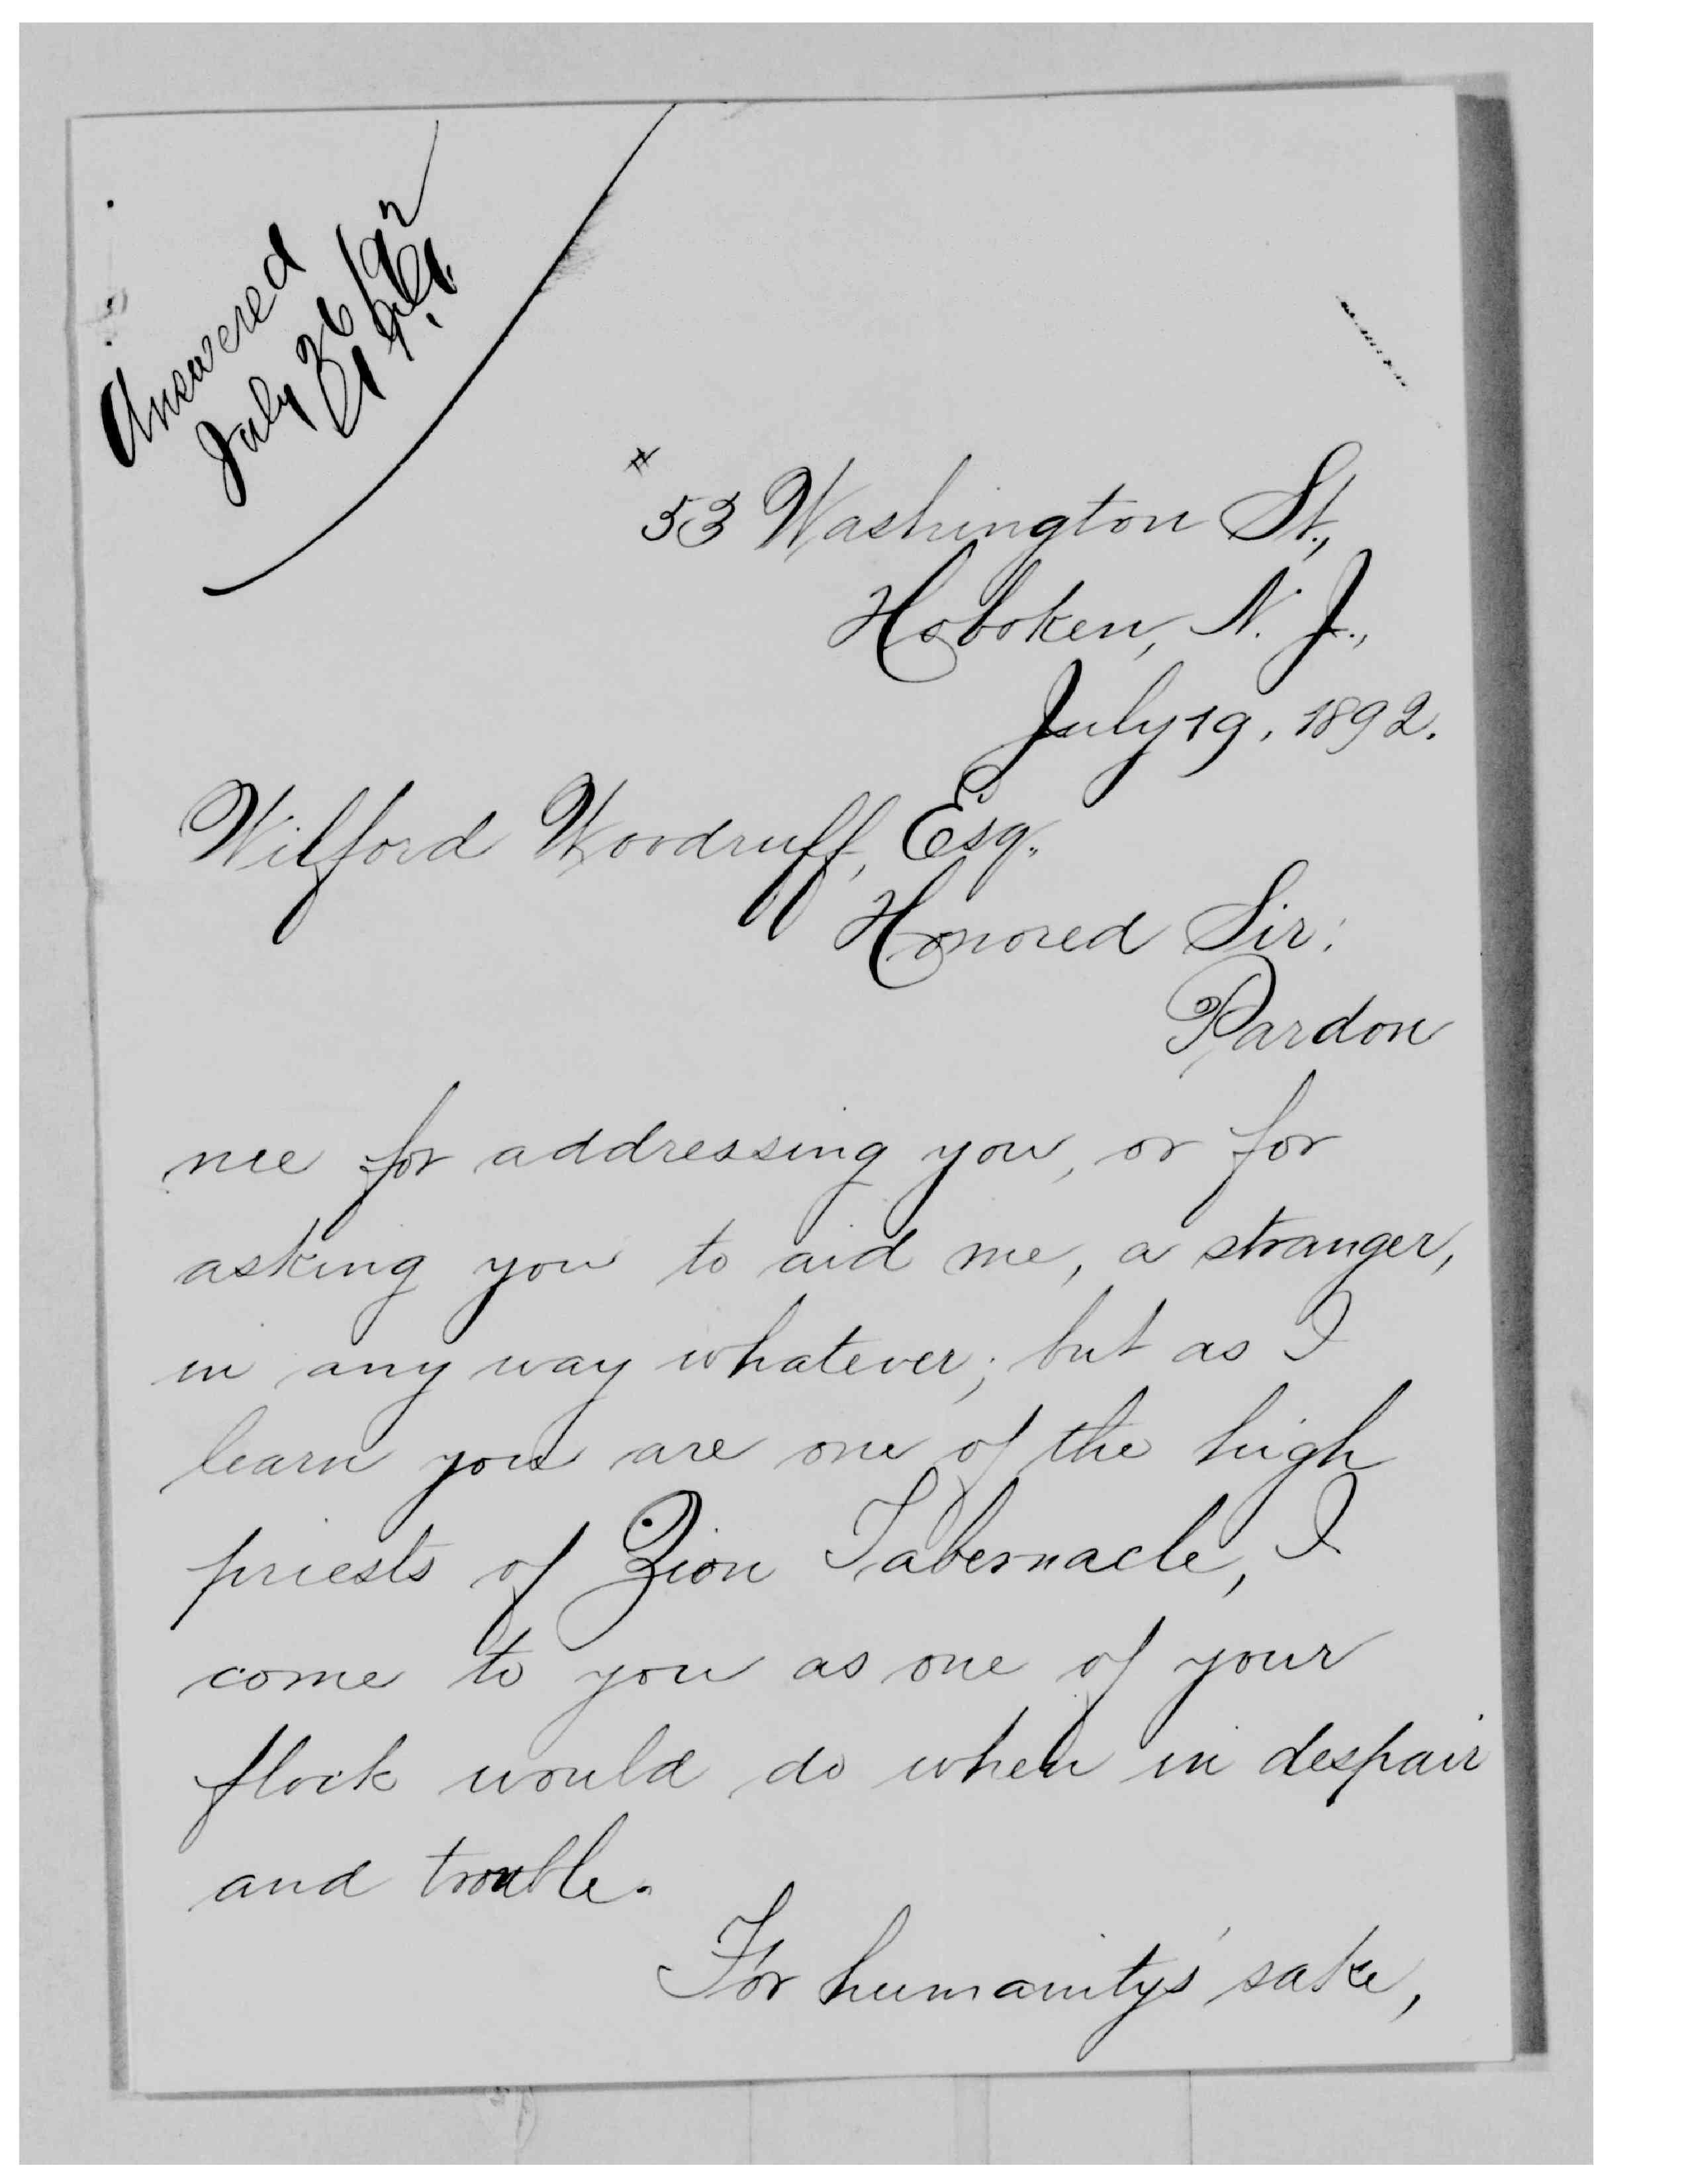 Answered
July 26/92
# 53 Washington St.,
Hoboken, N. J.,
July 19, 1892.
Wilford Woodruff, Esq.
Honored Sir:
Pardon
me for addressing you, or for
asking you to aid me, a stranger,
in any way whatever; but as I
learn you are one of the high
priests of Zion Tabernacle, I
come to you as one of your
flock would do when in despair
and trouble.
For humanity's sake,